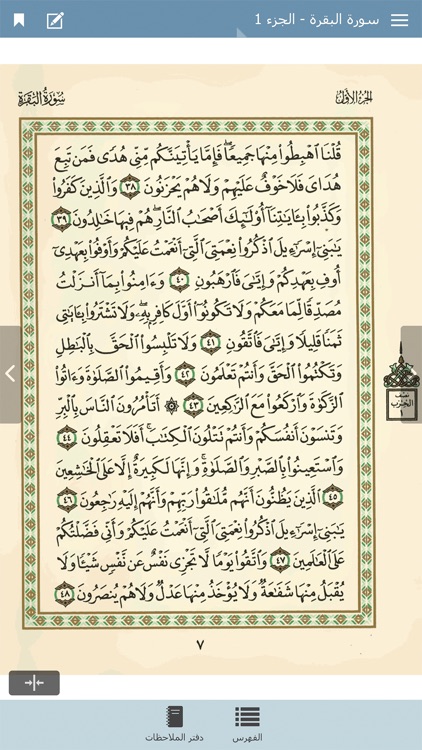 سورة البقرة - الجزء 1
سُورَةُ البَقَرَةِ
الجُزءُ الأَوَّلُ
قُلْنَا ٱهْبِطُوا۟ مِنْهَا جَمِيعًا ۖ فَإِمَّا يَأْتِيَنَّكُم مِّنِّى هُدًى فَمَن تَبِعَ
هُدَاىَ فَلَا خَوْفٌ عَلَيْهِمْ وَلَا هُمْ يَحْزَنُونَ ٣٨ وَٱلَّذِينَ كَفَرُوا۟
وَكَذَّبُوا۟ بِـَٔايَـٰتِنَآ أُو۟لَـٰٓئِكَ أَصْحَـٰبُ ٱلنَّارِ ۖ هُمْ فِيهَا خَـٰلِدُونَ ٣٩
يَـٰبَنِىٓ إِسْرَٰٓءِيلَ ٱذْكُرُوا۟ نِعْمَتِىَ ٱلَّتِىٓ أَنْعَمْتُ عَلَيْكُمْ وَأَوْفُوا۟ بِعَهْدِىٓ
أُوفِ بِعَهْدِكُمْ وَإِيَّـٰىَ فَٱرْهَبُونِ ٤٠ وَءَامِنُوا۟ بِمَآ أَنزَلْتُ
مُصَدِّقًا لِّمَا مَعَكُمْ وَلَا تَكُونُوٓا۟ أَوَّلَ كَافِرٍۭ بِهِۦ ۖ وَلَا تَشْتَرُوا۟ بِـَٔايَـٰتِى
ثَمَنًا قَلِيلًا وَإِيَّـٰىَ فَٱتَّقُونِ ٤١ وَلَا تَلْبِسُوا۟ ٱلْحَقَّ بِٱلْبَـٰطِلِ
وَتَكْتُمُوا۟ ٱلْحَقَّ وَأَنتُمْ تَعْلَمُونَ ٤٢ وَأَقِيمُوا۟ ٱلصَّلَوٰةَ وَءَاتُوا۟
ٱلزَّكَوٰةَ وَٱرْكَعُوا۟ مَعَ ٱلرَّٰكِعِينَ ٤٣ ۞ أَتَأْمُرُونَ ٱلنَّاسَ بِٱلْبِرِّ
وَتَنسَوْنَ أَنفُسَكُمْ وَأَنتُمْ تَتْلُونَ ٱلْكِتَـٰبَ ۚ أَفَلَا تَعْقِلُونَ ٤٤
وَٱسْتَعِينُوا۟ بِٱلصَّبْرِ وَٱلصَّلَوٰةِ ۚ وَإِنَّهَا لَكَبِيرَةٌ إِلَّا عَلَى ٱلْخَـٰشِعِينَ
٤٥ ٱلَّذِينَ يَظُنُّونَ أَنَّهُم مُّلَـٰقُوا۟ رَبِّهِمْ وَأَنَّهُمْ إِلَيْهِ رَٰجِعُونَ ٤٦
يَـٰبَنِىٓ إِسْرَٰٓءِيلَ ٱذْكُرُوا۟ نِعْمَتِىَ ٱلَّتِىٓ أَنْعَمْتُ عَلَيْكُمْ وَأَنِّى فَضَّلْتُكُمْ
عَلَى ٱلْعَـٰلَمِينَ ٤٧ وَٱتَّقُوا۟ يَوْمًا لَّا تَجْزِى نَفْسٌ عَن نَّفْسٍ شَيْـًٔا وَلَا
يُقْبَلُ مِنْهَا شَفَـٰعَةٌ وَلَا يُؤْخَذُ مِنْهَا عَدْلٌ وَلَا هُمْ يُنصَرُونَ ٤٨
نصف
الحزب
١
٧
الفهرس
دفتر الملاحظات